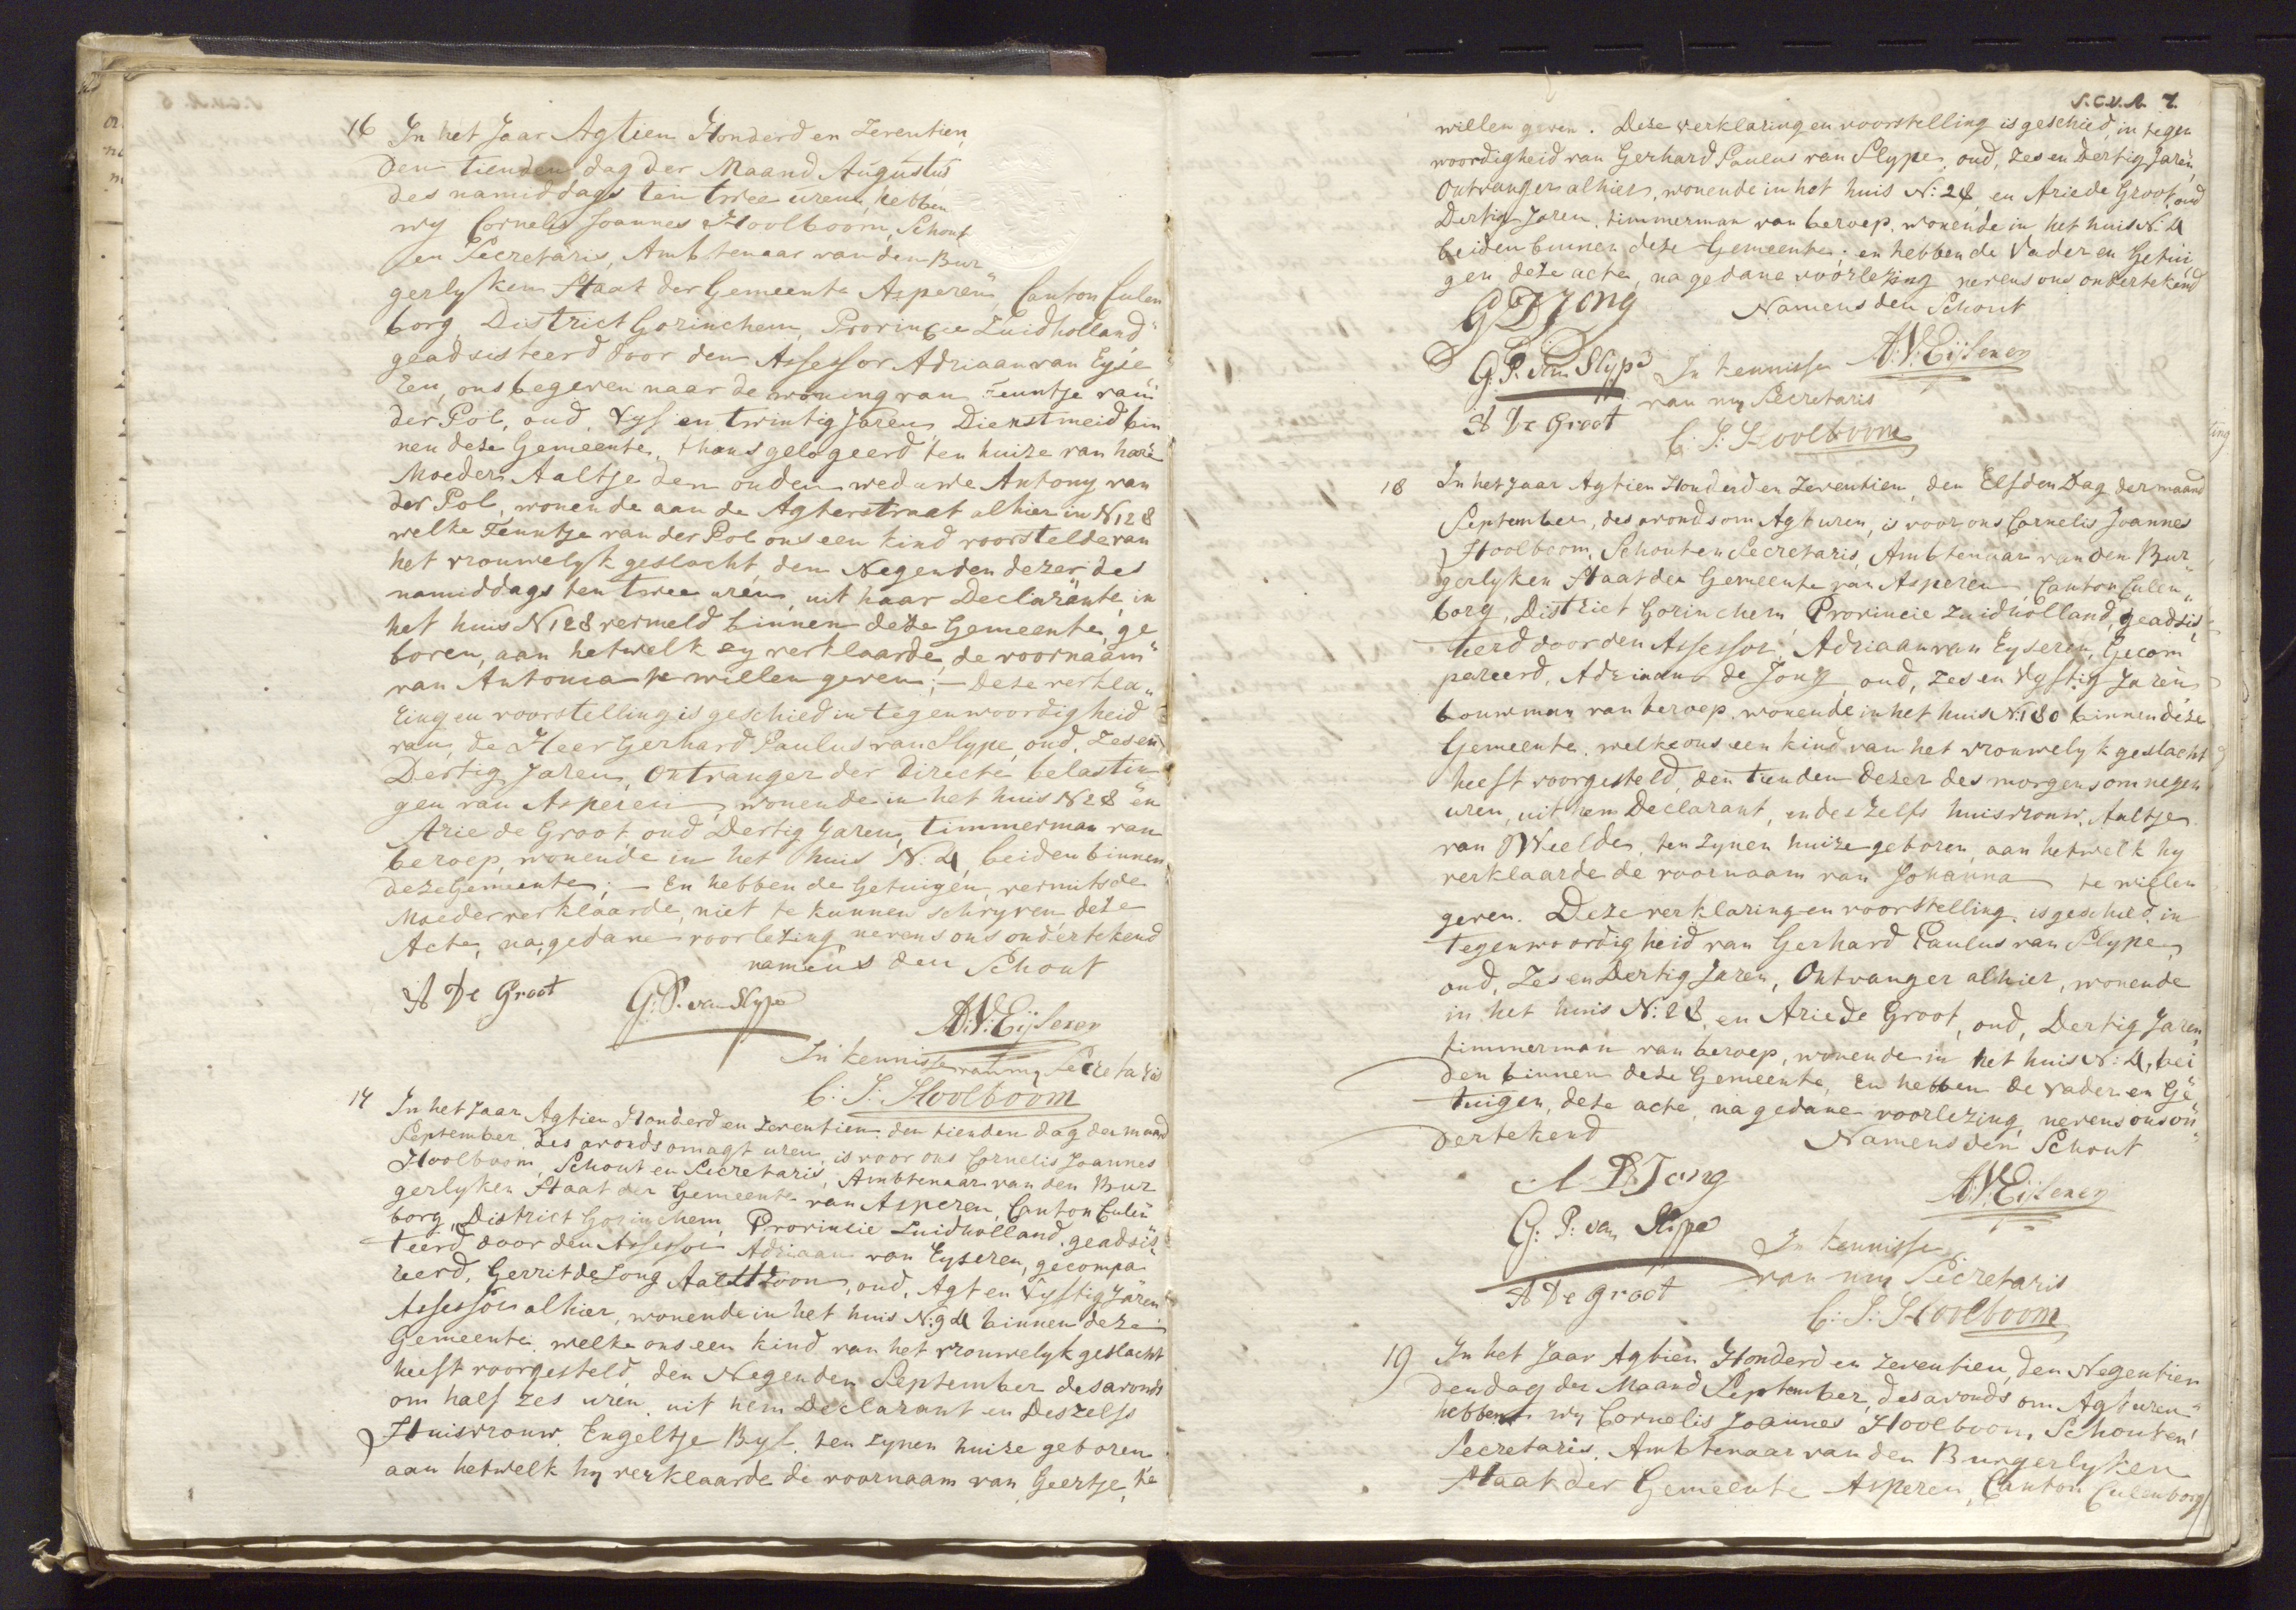 16 In het Jaar Agtien Honderd en Zeventien,
den tienden dag der Maand Augustus
des namiddags ten twee uren, hebben
wy Cornelis Joannes Hoolboom, Schout
en Secretaris, Ambtenaar van den Bur„
gerlyken Staat der Gemeente Asperen, Canton Culen
borg, District Gorinchem, Provincie Zuidholland„
geadsisteerd door den Assessor Adriaan van Eyse
ren, ons begeven naar de woning van Teuntje van
der Pol, oud, Vyf en twintig Jaren, Dienstmeid bin
nen deze Gemeente, thans gelogeerd ten huize van hare
Moeder Aaltje den ouden weduwe Antony van
der Pol, wonende aan de Agterstraat alhier in N 128
welke Teuntje van der Pol ons een kind voorstelde van
het vrouwelyk geslacht, den Negenden dezer des
namiddags ten twee uren, uit haar Declarante, in
het huis N 128 vermeld binnen deze Gemeente, ge
boren, aan hetwelk zy verklaarde, de voornaam
van Antonia te willen geven; – Deze verkla„
ring en voorstelling is geschied in tegenwoordigheid
van, de Heer Gerhard Paulus van Slype, oud, Zes en
Dertig Jaren, Ontvanger der Directe belastin
gen van Asperen, wonende in het huis N 28 en
Arie de Groot, oud Dertig Jaren, timmerman van
beroep, wonende in het huis N: 4, beiden binnen
deze Gemeente; – En hebben de Getuigen, vermits de
Moeder verklaarde, niet te kunnen schryven deze
Acte, na gedane voorlezing nevens ons ondertekend
namens den Schout
A De Groot G: P. van Slype
A:V:Eijseren
In kennisse van my Secretaris
C: J: Hoolboom
17 In het Jaar Agtien Honderd en Zeventien, den tienden dag der maand
September, des avonds om agt uren, is voor ons Cornelis Joannes
Hoolboom, Schout en Secretaris, Ambtenaar van den Bur
gerlyken Staat der Gemeente van Asperen, Canton Culen
borg, District Gorinchem, Provincie Zuidholland, geadsis„
teerd door den Assessor Adriaan van Eyseren, gecompa
reerd, Gerrit de Jong Aaltszoon, oud, Agt en Vyftig Jaren
Assessor alhier, wonende in het huis N: 94 binnen deze
Gemeente, welke ons een kind van het vrouwelyk geslacht
heeft voorgesteld, den Negenden September des avonds
om half zes uren, uit hem Declarant en Deszelfs
Huisvrouw, Engeltje Byl, ten zynen huize geboren
aan hetwelk hy verklaarde de voornaam van Geertje, te
S.C.V.A. 7.
willen geven. Deze verklaring en voorstelling is geschied, in tegen
woordigheid van Gerhard Paulus van Slype, oud, Zes en Dertig Jaren,
Ontvanger alhier, wonende in het huis N: 28, en Arie de Groot, oud
Dertig Jaren, timmerman van beroep, wonende in het huis N: 4
beiden binnen deze Gemeente; en hebben de Vader en Getui
gen deze acte, na gedane voorlezing nevens ons ondertekend
G D Jong Namens den Schout
A:V:Eijseren
G. P. van Slype In kennisse
van my Secretaris
A De Groot
C: J: Hoolboom
18 In het Jaar Agtien Honderd en Zeventien, den Elfden Dag der maand
September, des avonds om Agt uren, is voor ons Cornelis Joannes
Hoolboom, Schout en Secretaris, Ambtenaar van den Bur„
gerlyken Staat der Gemeente van Asperen, Canton Culen„
borg, District Gorinchem Provincie Zuidholland, geadsis„
teerd door den Assessor, Adriaan van Eyseren, Gecom
pareerd, Adriaan de Jong, oud, Zes en Vyftig Jaren
bouwman van beroep, wonende in het huis N: 180 binnen deze
Gemeente, welke ons een kind van het vrouwelyk geslacht
heeft voorgesteld, den tienden dezer des morgens om negen
uren, uit hem Declarant, en deszelfs huisvrouw, Aaltje
van Weelde, ten zynen huize geboren, aan hetwelk hy
verklaarde de voornaam van Johanna te willen
geven. Deze verklaring en voorstelling, is geschied, in
tegenwoordigheid van Gerhard Paulus van Slype,
oud, Zes en Dertig Jaren, Ontvanger alhier, wonende
in het huis N: 28, en Arie de Groot, oud, Dertig Jaren,
timmerman van beroep, wonende in het huis N: 4, bei
den binnen deze Gemeente, En hebben de Vader en Ge„
tuigen, deze acte, na gedane voorlezing, nevens ons on„
dertekend Namens den Schout
A D Jong
A:V:Eijseren
G: P: van Slype In kennisse
van my Secretaris
A De Groot
C: J: Hoolboom
19 In het Jaar Agtien Honderd en Zeventien, den Negentien
den dag der Maand September, des avonds om Agt uren
hebben wy Cornelis Joannes Hoolboom, Schout en
Secretaris, Ambtenaar van den Burgerlyken
Staat der Gemeente Asperen, Canton Culenborg